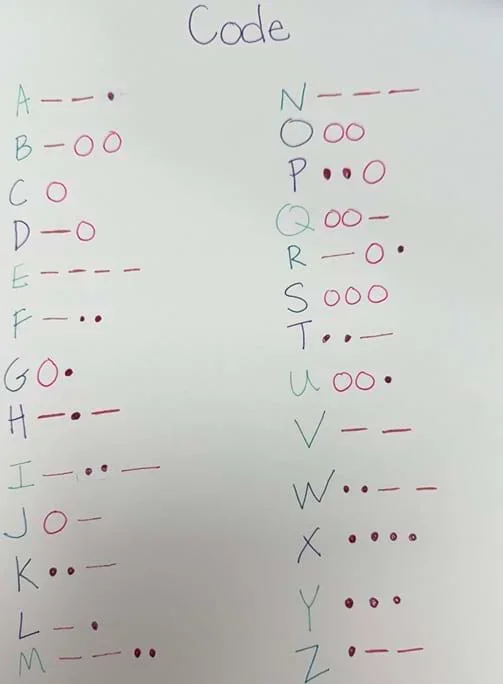 Code
A — — •
B — O O
C O
D — O
E — — — —
F — • •
G O •
H — • —
I — • • —
J O —
K • • —
L — •
M — — • •
N — — —
O O O
P • • O
Q O O —
R — O •
S O O O
T • • —
U O O •
V — —
W • • — —
X • • • •
Y • • •
Z • — —